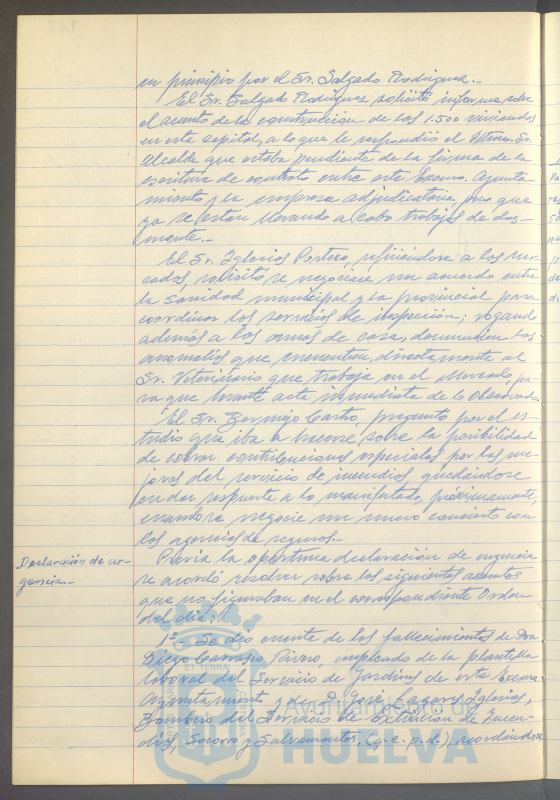 en principio por el Sr. Salgado Rodríguez.-
El Sr. Salgado Rodríguez solicitó informe sobre
el asunto de la construcción de las 1.500 viviendas
en esta capital, a lo que le respondió el Iltmo. Sr.
Alcalde que estaba pendiente de la firma de la
escritura de contrato entre este Excmo. Ayunta
miento y la empresa adjudicataria, pero que
ya se están llevando a cabo trabajos de des-
monte.-
El Sr. Iglesias Portero, refiriéndose a los mer-
cados, solicitó se negociase un acuerdo entre
la sanidad municipal y la provincial para
coordinar los servicios de inspección; rogand
además a las amas de casa, denuncien las
anomalías que encuentren, directamente al
Sr. Veterinario que trabaja en el Mercado, pa-
ra que levante acta inmediata de lo observado.
El Sr. Bermejo Castro, preguntó por el es-
tudio que iba a hacerse, sobre la posibilidad
de cobrar contribuciones especiales por las me-
joras del servicio de incendios quedándose
en dar respuesta a lo manifestado, próximamente,
cuando se negocie un nuevo concierto con
las agencias de seguros.-
Declaración de ur-
gencia.-
Previa la oportuna declaración de urgencia
se acordó resolver sobre los siguientes asuntos
que no figuraban en el correspondiente Orden
del día:
1º.- Se dió cuenta de los fallecimientos de Don
Diego Carrasco, empleado de la plantilla
laboral del Servicio de Jardines de este Excmo.
Ayuntamiento y de D. José Lagares Iglesias,
Bombero del Servicio de Extinción de Incen-
dios, Socorro y Salvamentos, (q.e.p.d.), acordándose
Ayuntamiento de
HUELVA